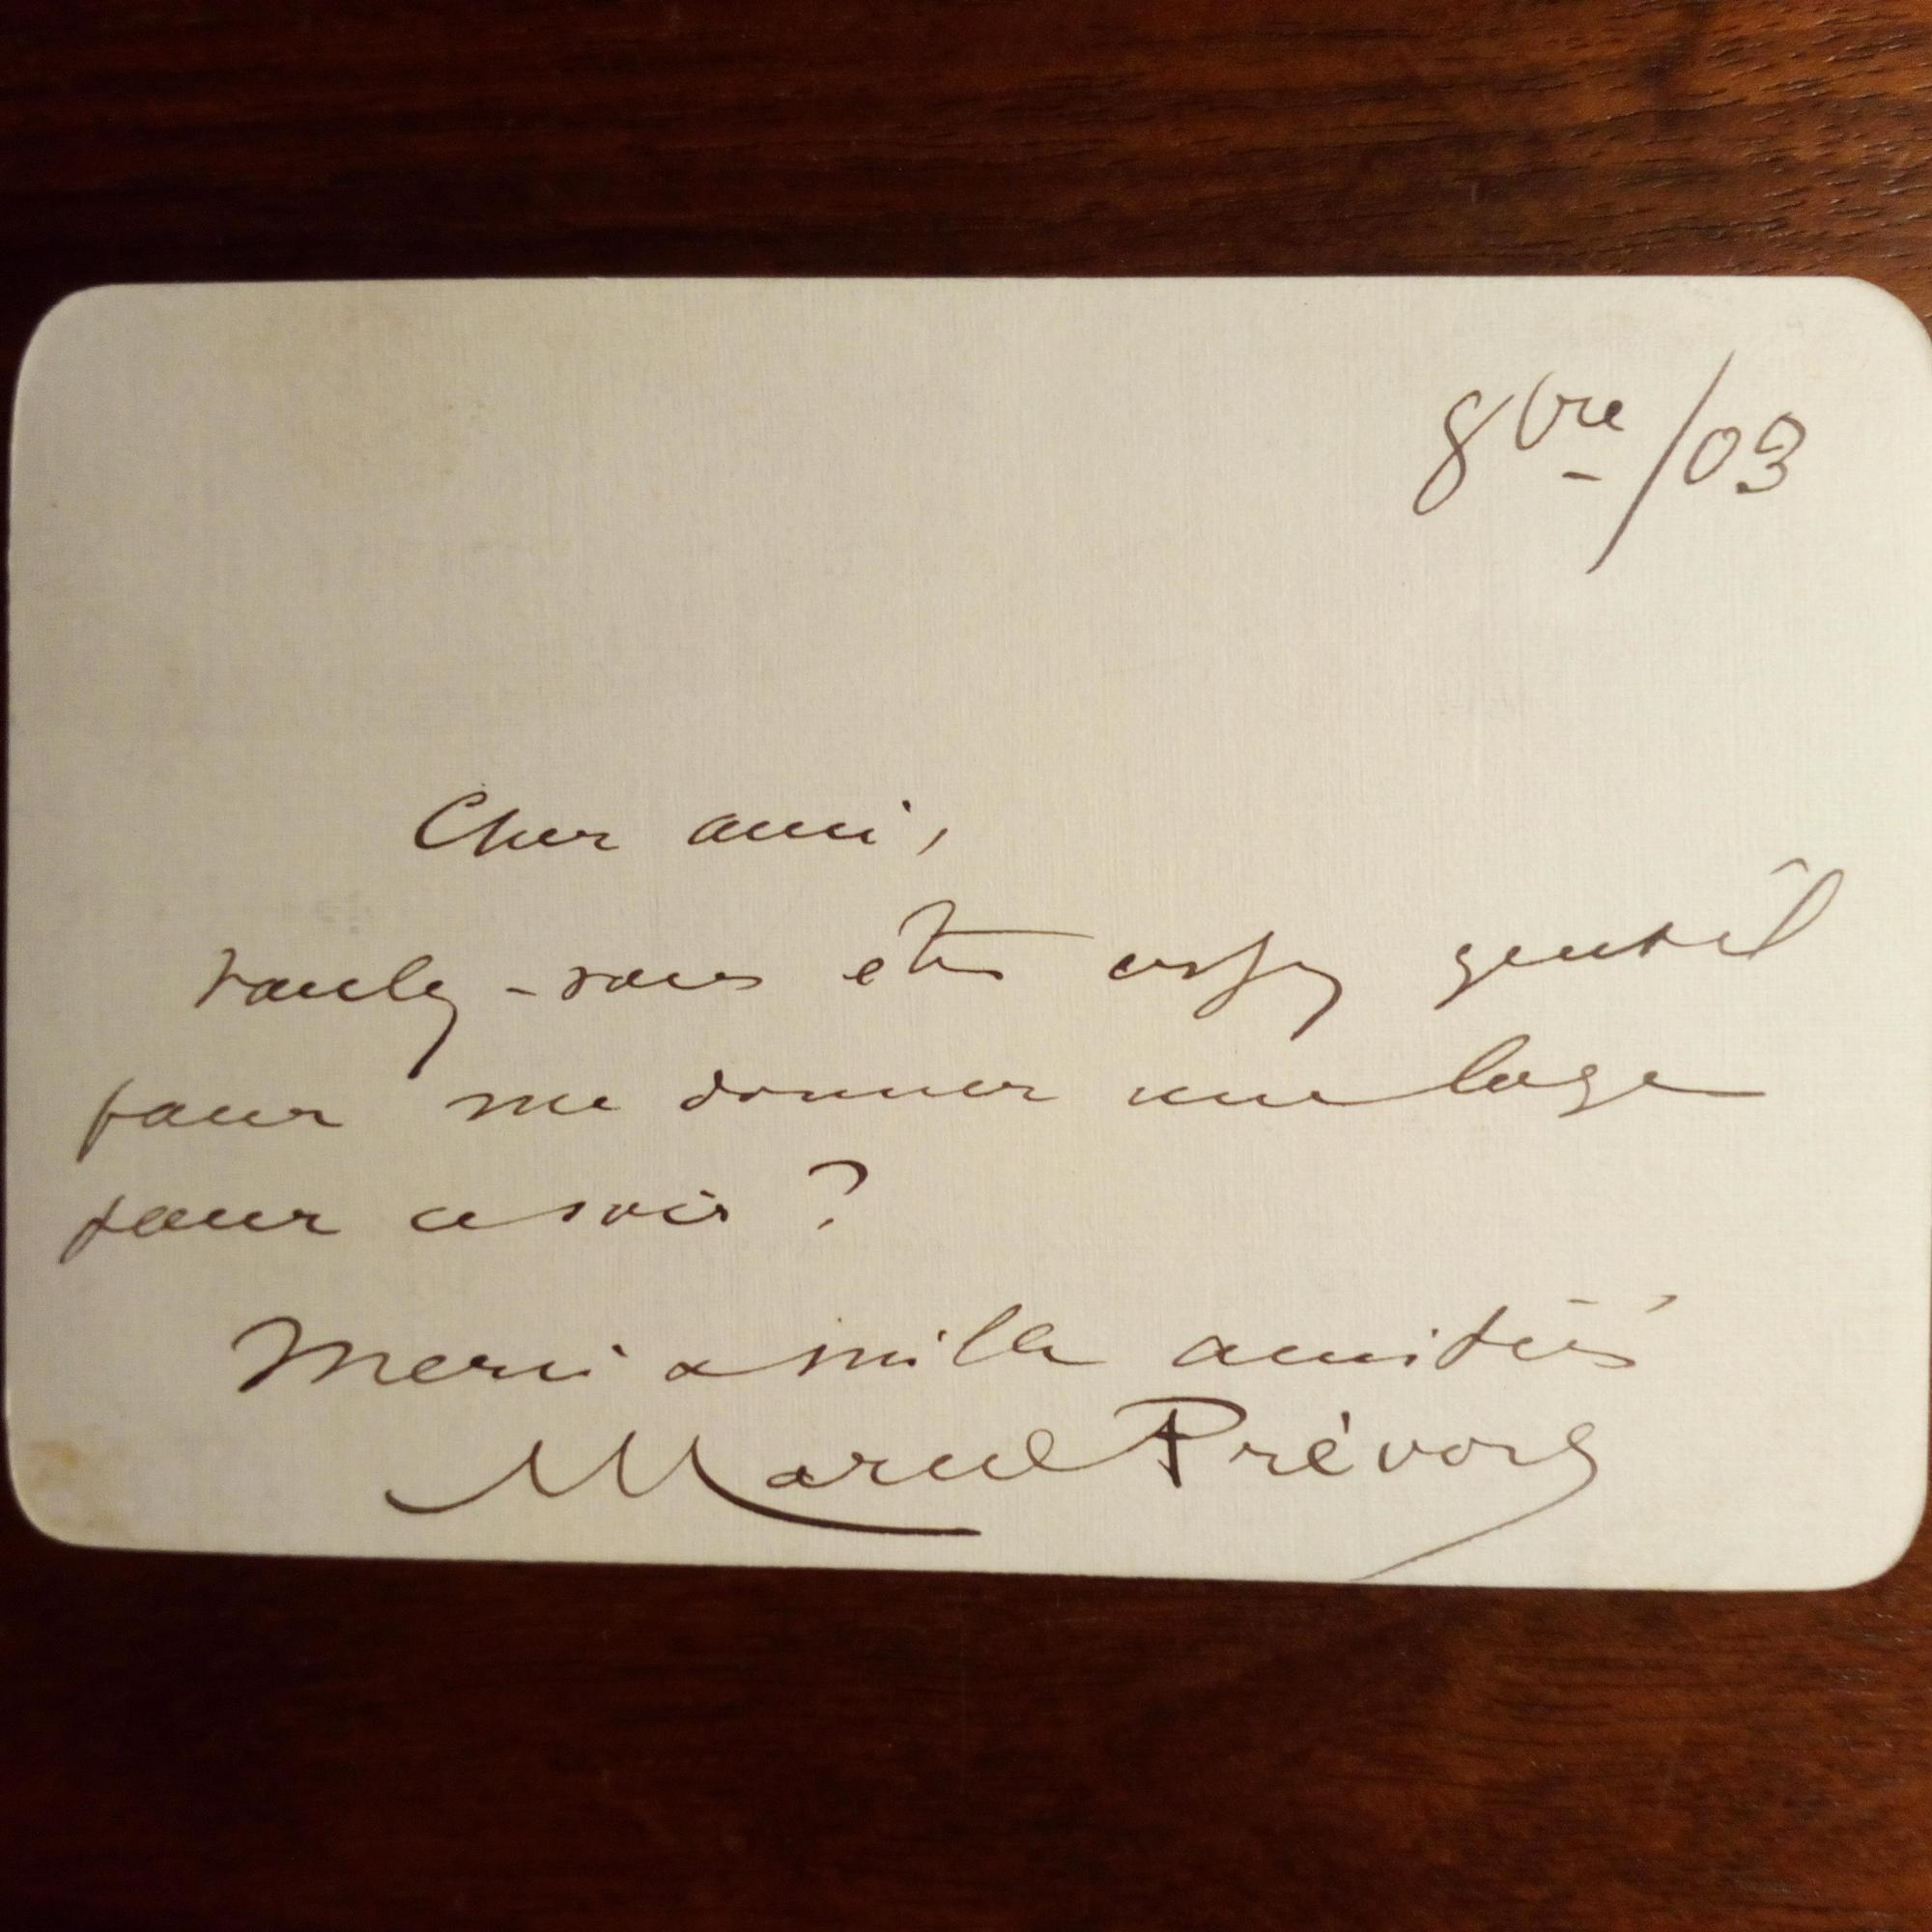 8bre/03
Cher ami,
voulez-vous être assez gentil
pour me donner une loge
pour ce soir ?
Merci & mille amitiés
Marcel Prévost